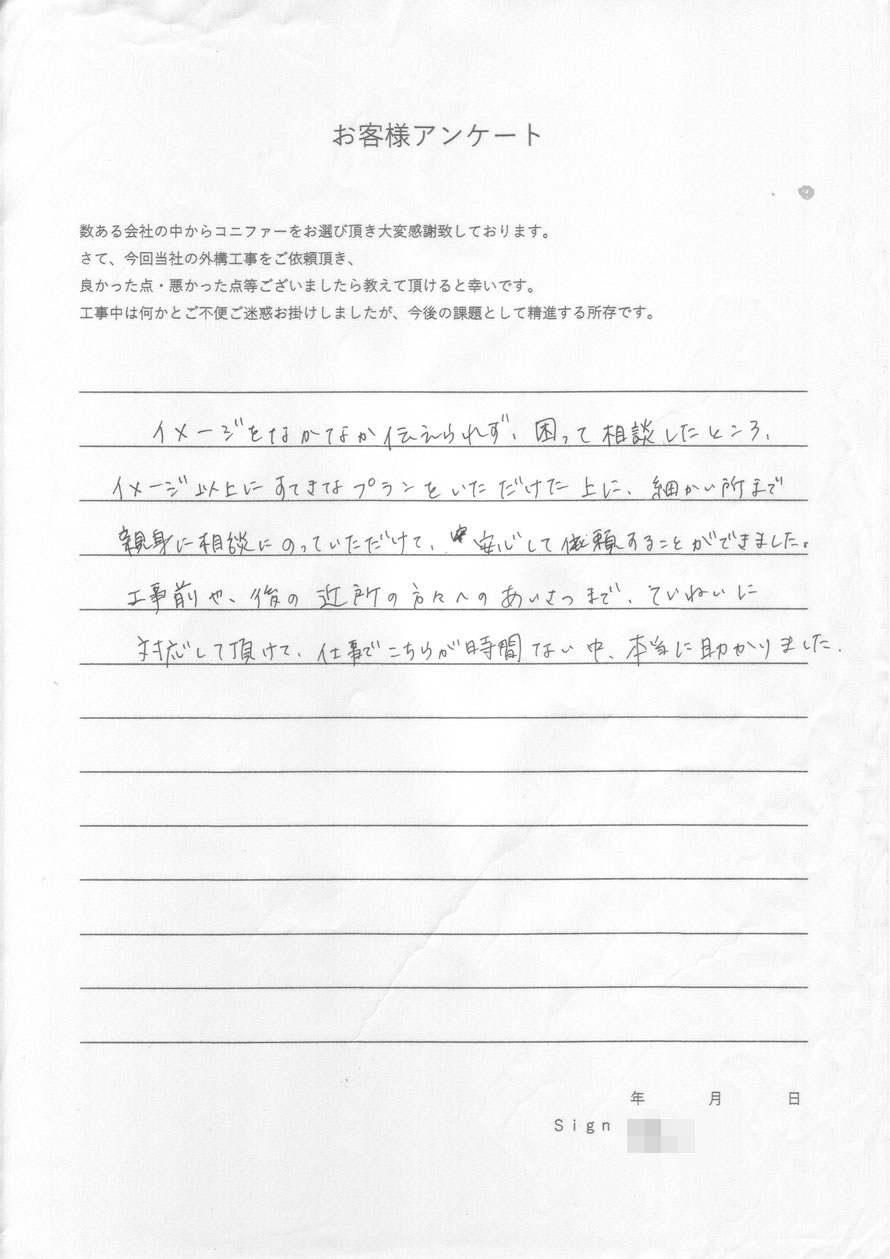 お客様アンケート
数ある会社の中からコニファーをお選び頂き大変感謝致しております。
さて、今回当社の外構工事をご依頼頂き、
良かった点・悪かった点等ございましたら教えて頂けると幸いです。
工事中は何かとご不便ご迷惑お掛けしましたが、今後の課題として精進する所存です。
イメージをなかなか伝えられず、困って相談したところ、
イメージ以上にすてきなプランをいただけた上に、細かい所まで
親身に相談にのっていただけて、安心して依頼することができました。
工事前や、後の近所の方々へのあいさつまで、ていねいに
対応して頂けて、仕事でこちらが時間ない中、本当に助かりました.
年 月 日
Sign